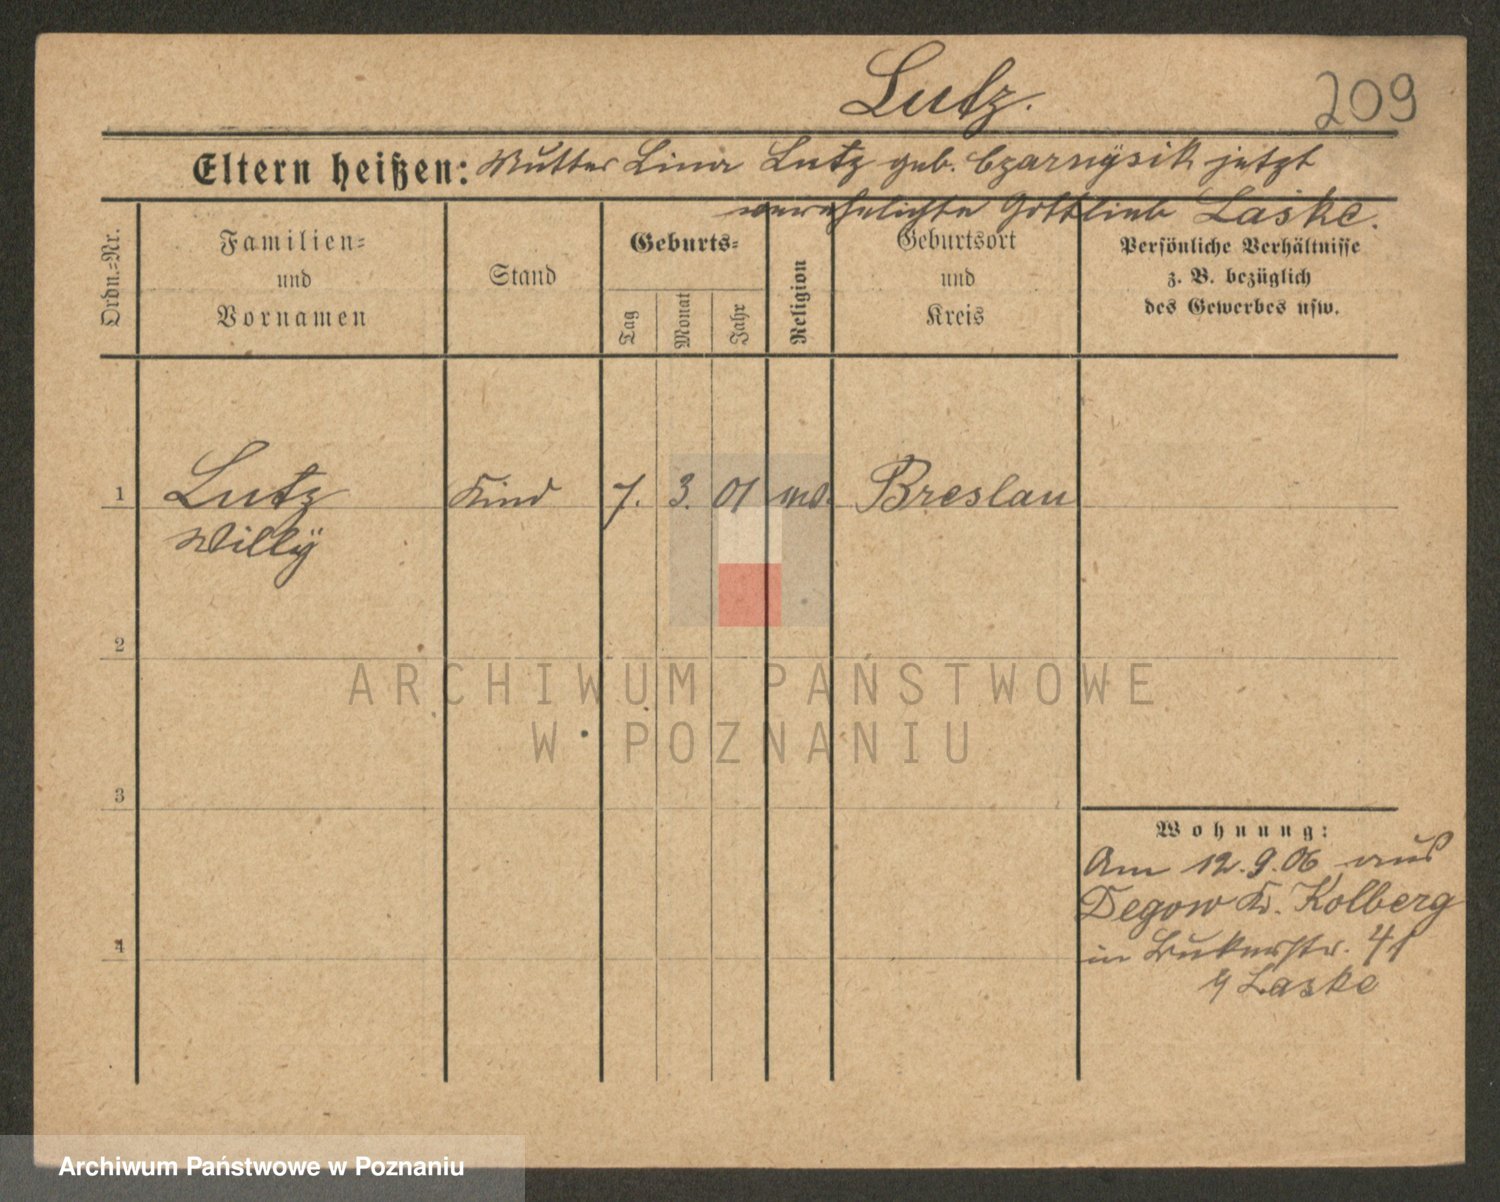 Lutz.
209
Eltern heißen: Mutter Lina Lutz geb. Czarnysik jetzt
verehelichte Gottlieb Laske.
Ordn.=Nr.
Familien=
und
Vornamen
Stand
Geburts=
Tag
Monat
Jahr
Religion
Geburtsort
und
Kreis
Persönliche Verhältnisse
z. B. bezüglich
des Gewerbes usw.
1 Lutz Kind 7. 3. 01 Breslau
Willÿ
2
3
4
Wohnung:
Am 12.9.06 aus
Degow Kr. Kolberg
in Bukerstr. 41
Laske
ARCHIWUM PAŃSTWOWE
W POZNANIU
Archiwum Państwowe w Poznaniu